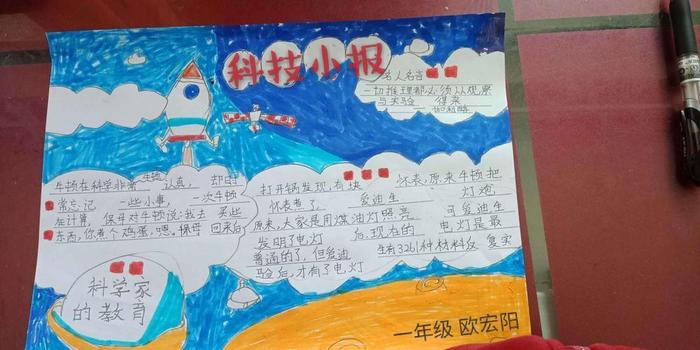 科技小报
名人名言
一切推理都必须从观察
与实验 得来
伽利略
牛顿在科学非常 认真, 却时
常忘记 一些小事, 一次牛顿
在计算, 保母对牛顿说:我去 买些
东西,你煮个鸡蛋,嗯,保母 回来后
打开锅发现,有块 怀表,原来牛顿把
怀表煮了 爱迪生 灯炮
原来,大家是用煤油灯照亮 可爱迪生
发明了电灯 后,现在的 电灯是最
普通的了,但爱迪 生有3261种材料仅 复实
马金后,才有了电灯
科学家
的教育
一年级 欧宏阳